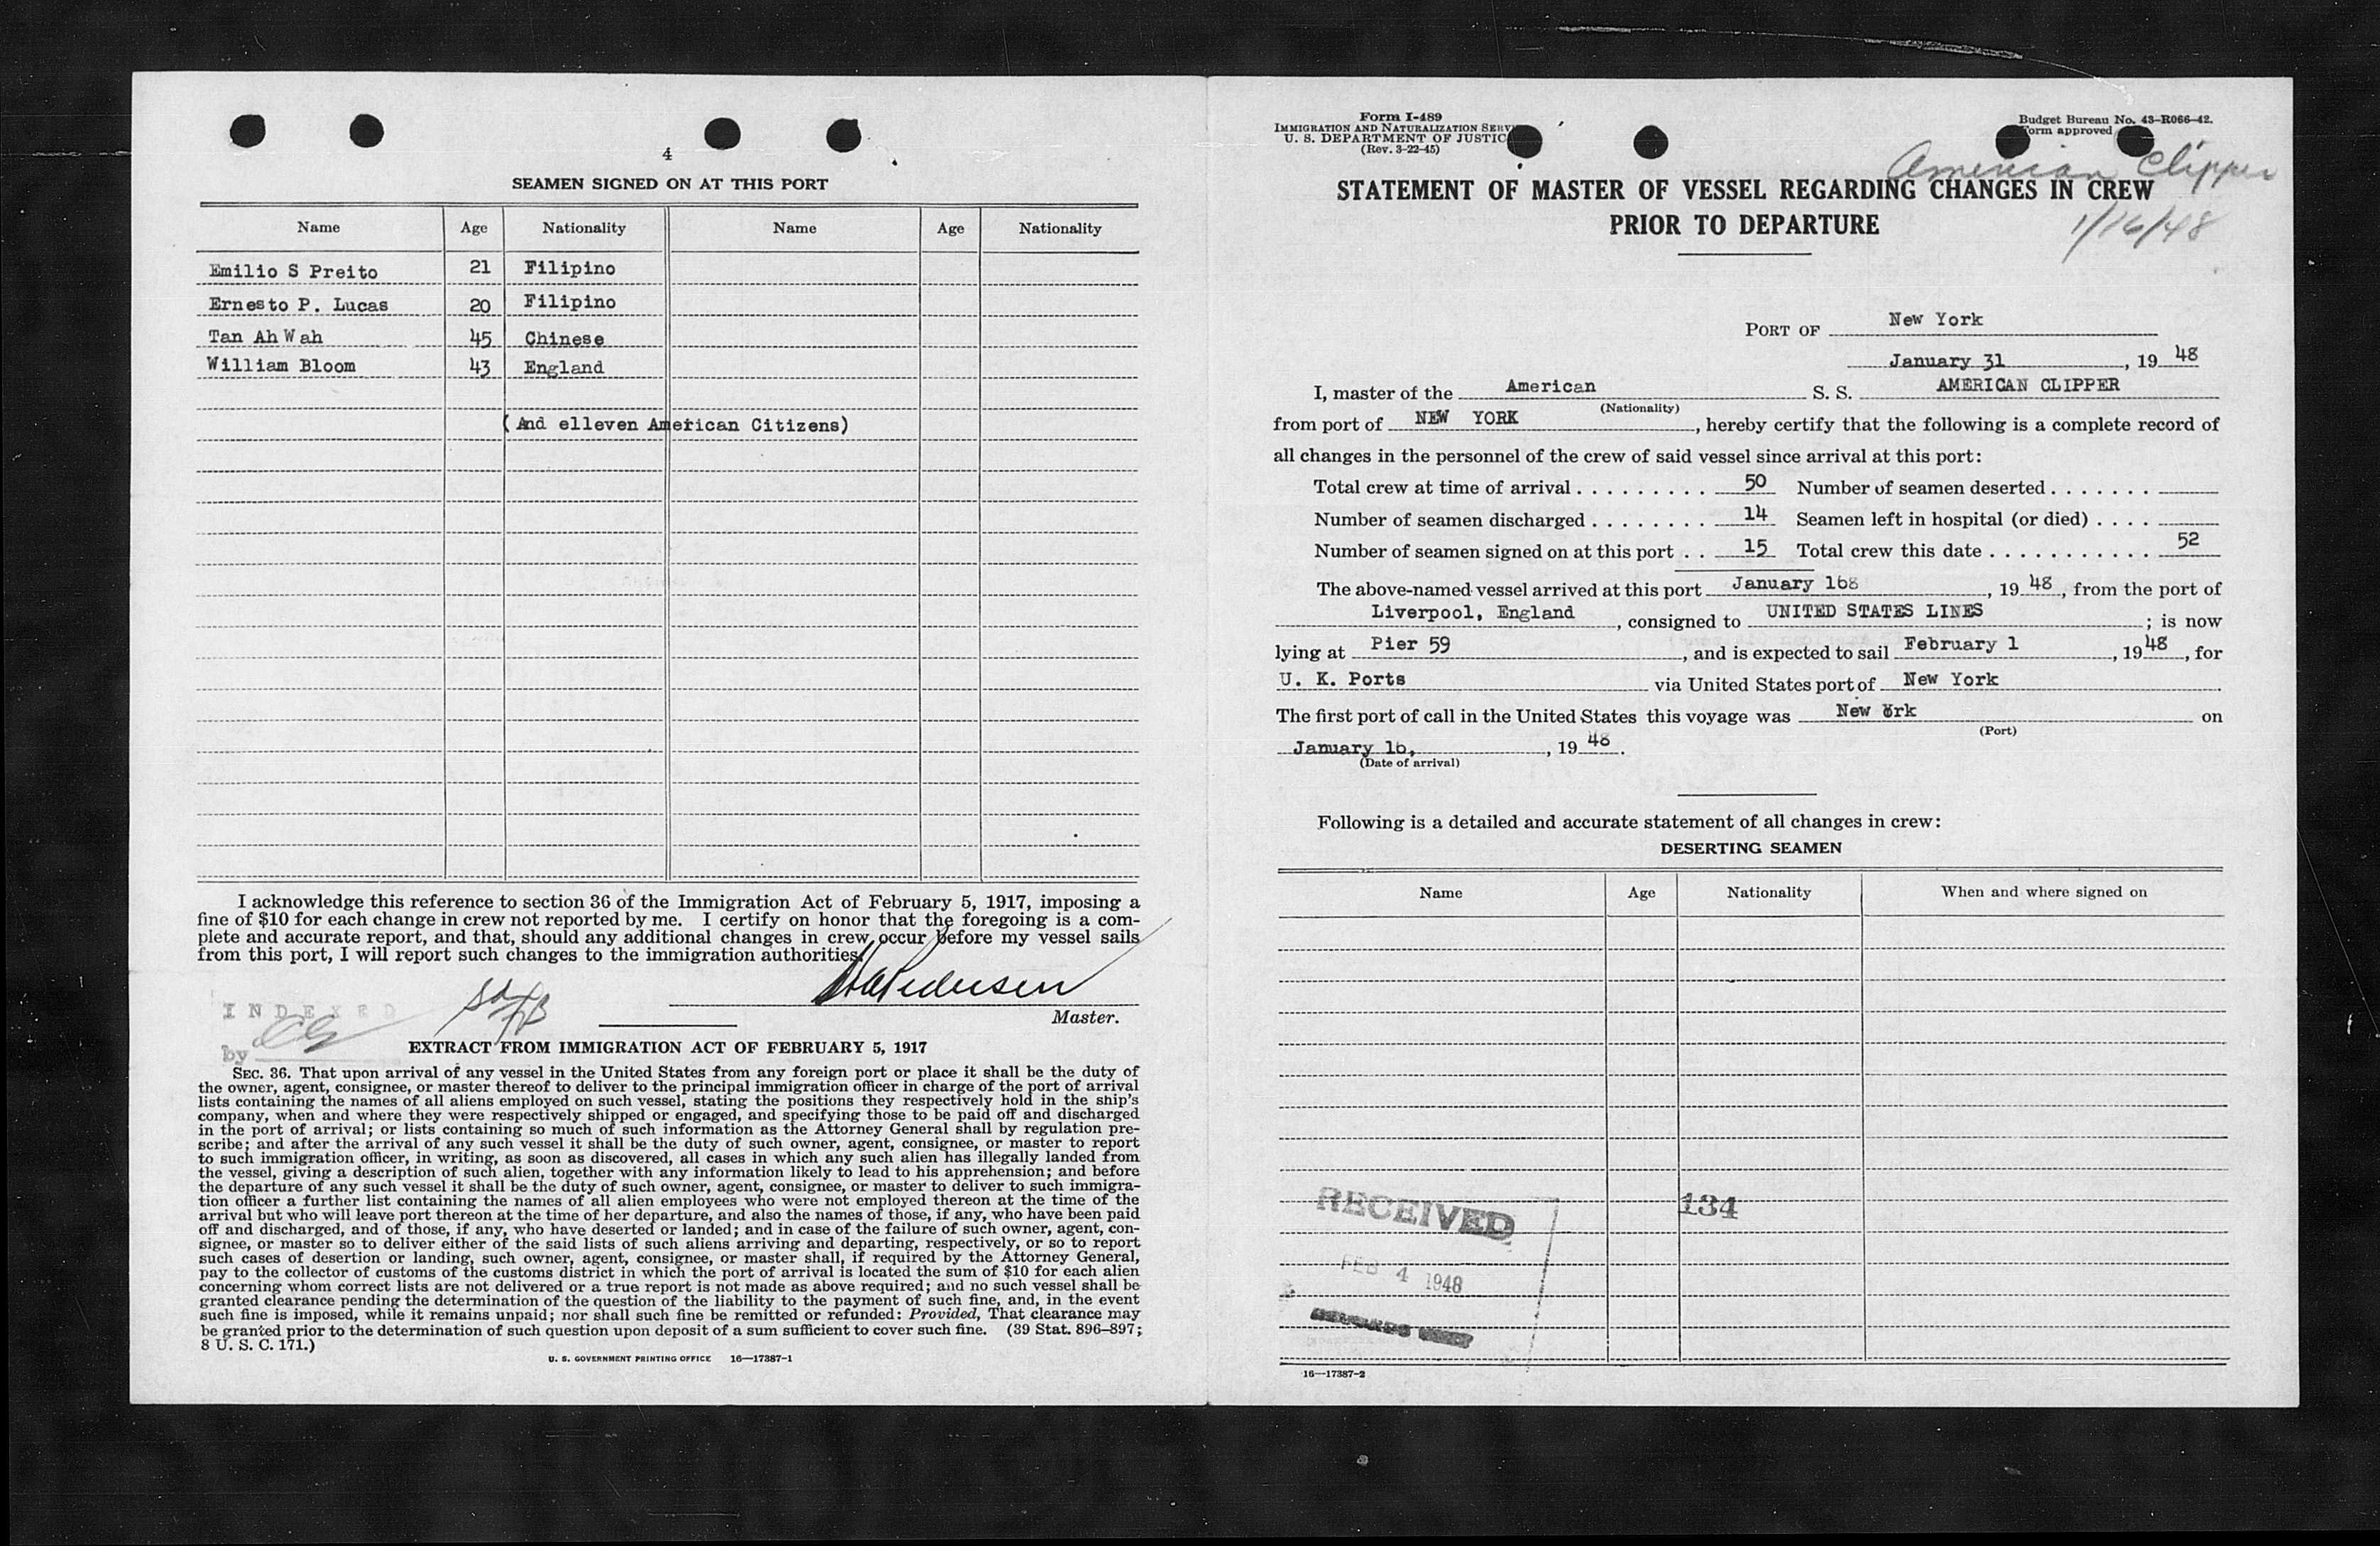 4
SEAMEN SIGNED ON AT THIS PORT
Name Age Nationality Name Age Nationality
Emilio S Preito 21 Filipino
Ernesto P. Lucas 20 Filipino
Tan Ah Wah 45 Chinese
William Bloom 43 England
( And elleven American Citizens)
I acknowledge this reference to section 36 of the Immigration Act of February 5, 1917, imposing a
fine of $10 for each change in crew not reported by me. I certify on honor that the foregoing is a com-
plete and accurate report, and that, should any additional changes in crew occur before my vessel sails
from this port, I will report such changes to the immigration authorities.
Pedersen
Master.
INDEXED
by CG
EXTRACT FROM IMMIGRATION ACT OF FEBRUARY 5, 1917
SEC. 36. That upon arrival of any vessel in the United States from any foreign port or place it shall be the duty of
the owner, agent, consignee, or master thereof to deliver to the principal immigration officer in charge of the port of arrival
lists containing the names of all aliens employed on such vessel, stating the positions they respectively hold in the ship's
company, when and where they were respectively shipped or engaged, and specifying those to be paid off and discharged
in the port of arrival; or lists containing so much of such information as the Attorney General shall by regulation pre-
scribe; and after the arrival of any such vessel it shall be the duty of such owner, agent, consignee, or master to report
to such immigration officer, in writing, as soon as discovered, all cases in which any such alien has illegally landed from
the vessel, giving a description of such alien, together with any information likely to lead to his apprehension; and before
the departure of any such vessel it shall be the duty of such owner, agent, consignee, or master to deliver to such immigra-
tion officer a further list containing the names of all alien employees who were not employed thereon at the time of the
arrival but who will leave port thereon at the time of her departure, and also the names of those, if any, who have been paid
off and discharged, and of those, if any, who have deserted or landed; and in case of the failure of such owner, agent, con-
signee, or master so to deliver either of the said lists of such aliens arriving and departing, respectively, or so to report
such cases of desertion or landing, such owner, agent, consignee, or master shall, if required by the Attorney General,
pay to the collector of customs of the customs district in which the port of arrival is located the sum of $10 for each alien
concerning whom correct lists are not delivered or a true report is not made as above required; and no such vessel shall be
granted clearance pending the determination of the question of the liability to the payment of such fine, and, in the event
such fine is imposed, while it remains unpaid; nor shall such fine be remitted or refunded: Provided, That clearance may
be granted prior to the determination of such question upon deposit of a sum sufficient to cover such fine. (39 Stat. 896–897;
8 U. S. C. 171.)
U. S. GOVERNMENT PRINTING OFFICE 16—17387-1
Form I-489
IMMIGRATION AND NATURALIZATION SERV
U. S. DEPARTMENT OF JUSTIC
(Rev. 3-22-45)
Budget Bureau No. 43-R066-42.
orm approved
American Clipper
STATEMENT OF MASTER OF VESSEL REGARDING CHANGES IN CREW
PRIOR TO DEPARTURE
1/16/48
PORT OF New York
January 31, 19 48
I, master of the American S. S. AMERICAN CLIPPER
(Nationality)
from port of NEW YORK, hereby certify that the following is a complete record of
all changes in the personnel of the crew of said vessel since arrival at this port:
Total crew at time of arrival . . . . . . . . . 50 Number of seamen deserted . . . . . . .
Number of seamen discharged . . . . . . . . 14 Seamen left in hospital (or died) . . . .
Number of seamen signed on at this port . . 15 Total crew this date . . . . . . . . . . . 52
The above-named vessel arrived at this port January 168, 19 48, from the port of
Liverpool, England, consigned to UNITED STATES LINES; is now
lying at Pier 59, and is expected to sail February 1, 19 48, for
U. K. Ports via United States port of New York
The first port of call in the United States this voyage was New Ork on
(Port)
January 16, , 19 48.
(Date of arrival)
Following is a detailed and accurate statement of all changes in crew:
DESERTING SEAMEN
Name Age Nationality When and where signed on
134
RECEIVED
FEB 4 1948
16—17387-2